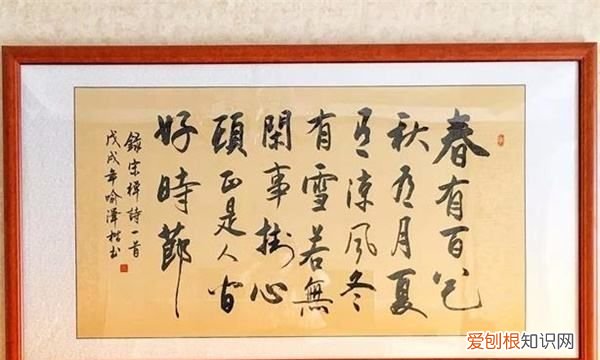 春有百花
秋有月夏
有涼風冬
有雪若無
閑事掛心
頭正是人間
好時節
錄宋禪詩一首
戊戌年喻澤書
爱刨根知识网